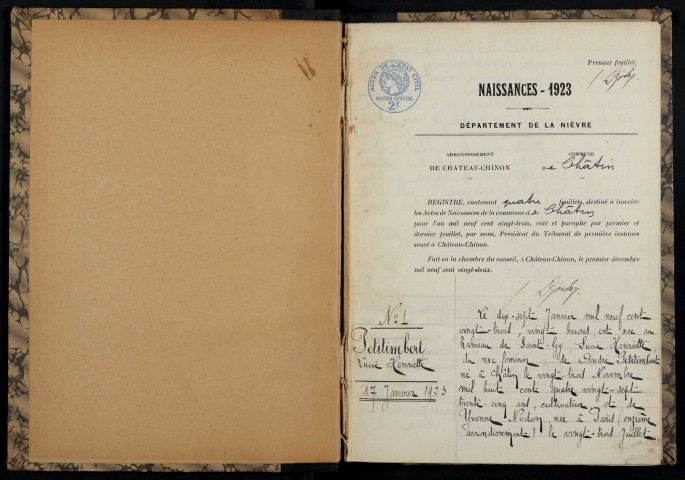 Premier feuillet.
ACTES DE L'ETAT CIVIL
PAPIER SPECIAL
2f
NAISSANCES - 1923
DÉPARTEMENT DE LA NIÈVRE
ARRONDISSEMENT
DE CHATEAU-CHINON
COMMUNE
de Châtin
REGISTRE, contenant quatre feuillets, destiné à inscrire
les Actes de Naissances de la commune de Châtin
pour l'an mil neuf cent vingt-trois, coté et paraphé par premier et
dernier feuillet, par nous, Président du Tribunal de première instance
séant à Château-Chinon.
Fait en la chambre du conseil, à Château-Chinon, le premier décembre
mil neuf cent vingt-deux.
No 1
Petitimbert
Lucie Henriette
17 Janvier 1923
Le dix-sept Janvier mil neuf cent
vingt-trois, vingt heures, est née au
hameau de Saint-Gy, Lucie Henriette
du sexe féminin, de André Petitimbert
né à Châtin le vingt-trois Novembre
mil huit cent quatre vingt-sept
trente cinq ans, cultivateur et de
Yvonne Nedon, née à Paris (onzième
arrondissement) le vingt-trois Juillet